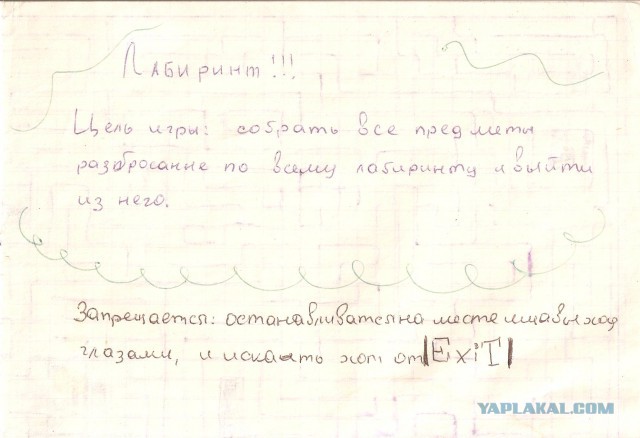 Лабиринт!!!
Цель игры: собрать все предметы
разбросание по всему лабиринту и выйти
из него.
Запрещается: останавливатся на месте ища выход
глазами, и искать хот от |ExiT|
YAPLAKAL.COM